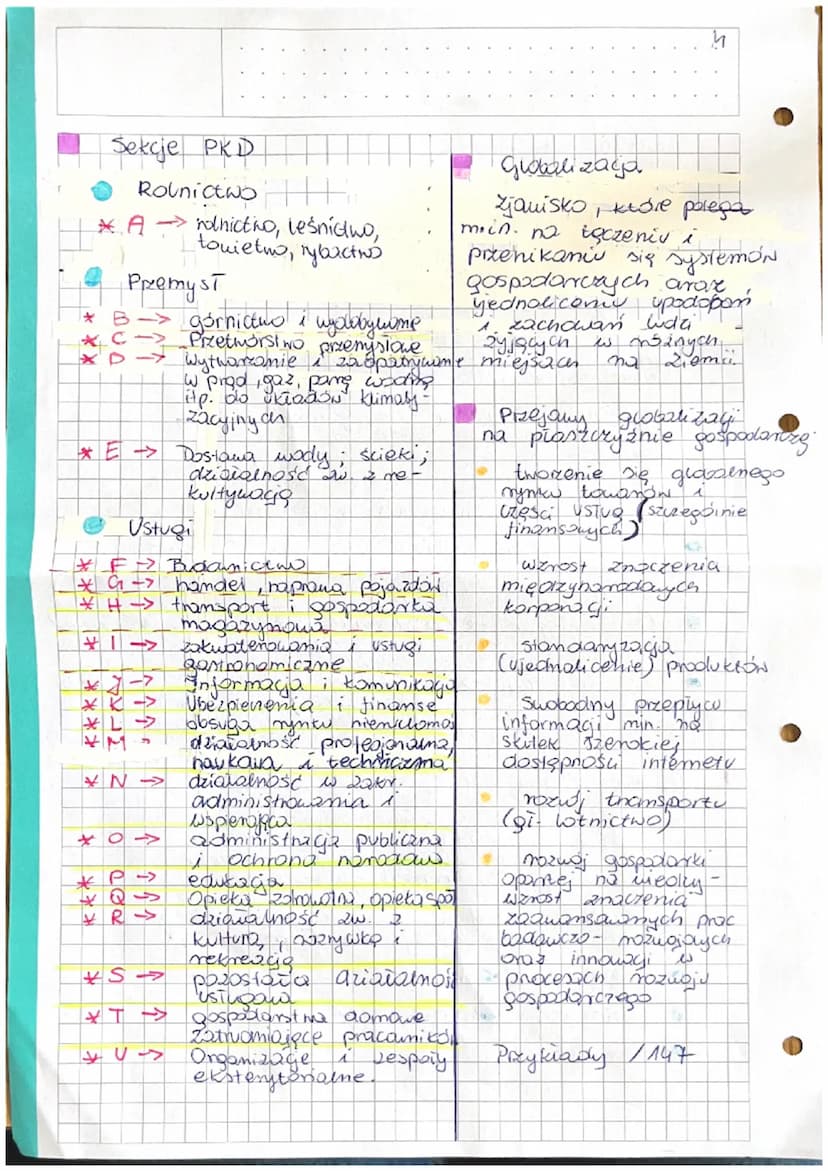 4
Sekcje PKD
Rolnictwo
* A → rolnictwo, leśnictwo,
łowietwo, rybactwo
Przemysł
* B → górnictwo i wydobywanie
* C → Przetwórstwo przemysłowe
* D → Wytwarzanie i zaopatrywanie
w prąd, gaz, parę wodną
itp. do układów klimaty-
zacyjnych
* E → Dostawa wody; ścieki;
działalność zw. z re-
kultywacją
Usługi
* F → Budownictwo
* G → handel, naprawa pojazdów
* H → transport i gospodarka
magazynowa
* I → zakwaterowania i usługi
gastronomiczne
* J → Informacja i komunikacja
* K → Ubezpieczenia i finanse
* L → obsuga rynku nieruchomoś
* M → działalność profesjonalna,
naukowa i techniczna
* N → działalność w zakr.
administrowania i
wspierająca
* O → administracja publiczna
i ochrona narodowa
* P → edukacja
* Q → Opieka zdrowotna, opieka społ
* R → działalność zw. z
kulturą, rozrywką i
rekreacją
* S → pozostała działalność
usługowa
* T → gospodarstwa domowe
zatrudniające pracowników
* U → Organizacje i zespoły
eksterytorialne.
Globalizacja
zjawisko, które polega
m.in. na łączeniu i
przenikaniu się systemów
gospodarczych oraz
ujednoliceniu upodobań
i zachowań ludzi
żyjących w różnych
miejscach na Ziemi.
Przejawy globalizacji
na płaszczyźnie gospodarczej
tworzenie się globalnego
rynku towarów i
części usług (szczególnie
finansowych)
wzrost znaczenia
międzynarodowych
korporacji
standaryzacja
(ujednolicenie) produktów
Swobodny przepływ
informacji min. na
skutek szerokiej
dostępności internetu
rozwój transportu
(gł. lotnictwo)
rozwój gospodarki
opartej na wiedzy -
wzrost znaczenia
zaawansowanych prac
badawczo-rozwojowych
oraz innowacji w
procesach rozwoju
gospodarczego
Przykłady /147